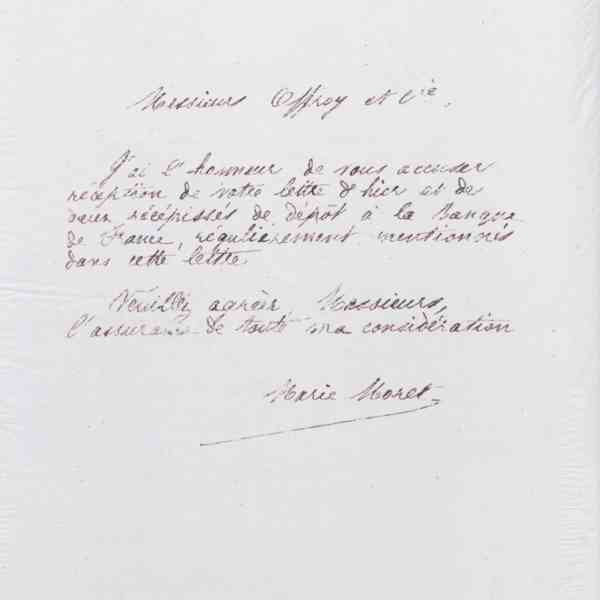 Messieurs Offroy et Cie.
J'ai l'honneur de vous accuser
réception de votre lettre d'hier et de
deux récépissés de dépôt à la Banque
de France, régulièrement mentionnés
dans cette lettre.
Veuillez agréer, Messieurs,
l'assurance de toute ma considération
Marie Moret